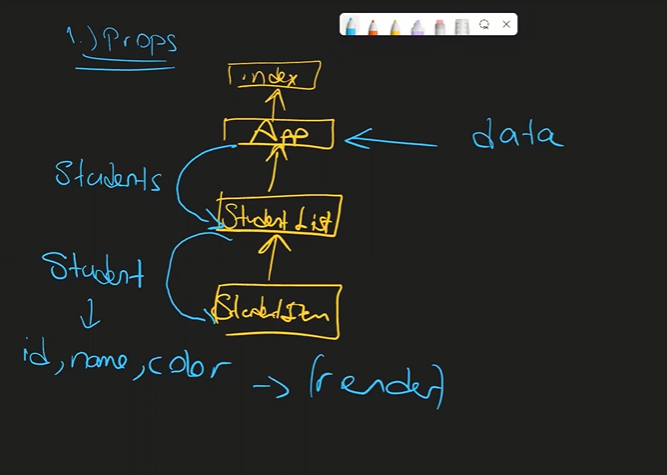 1.) Props
index
App
data
Students
Student List
Student
StudentItem
id, name, color → (render)